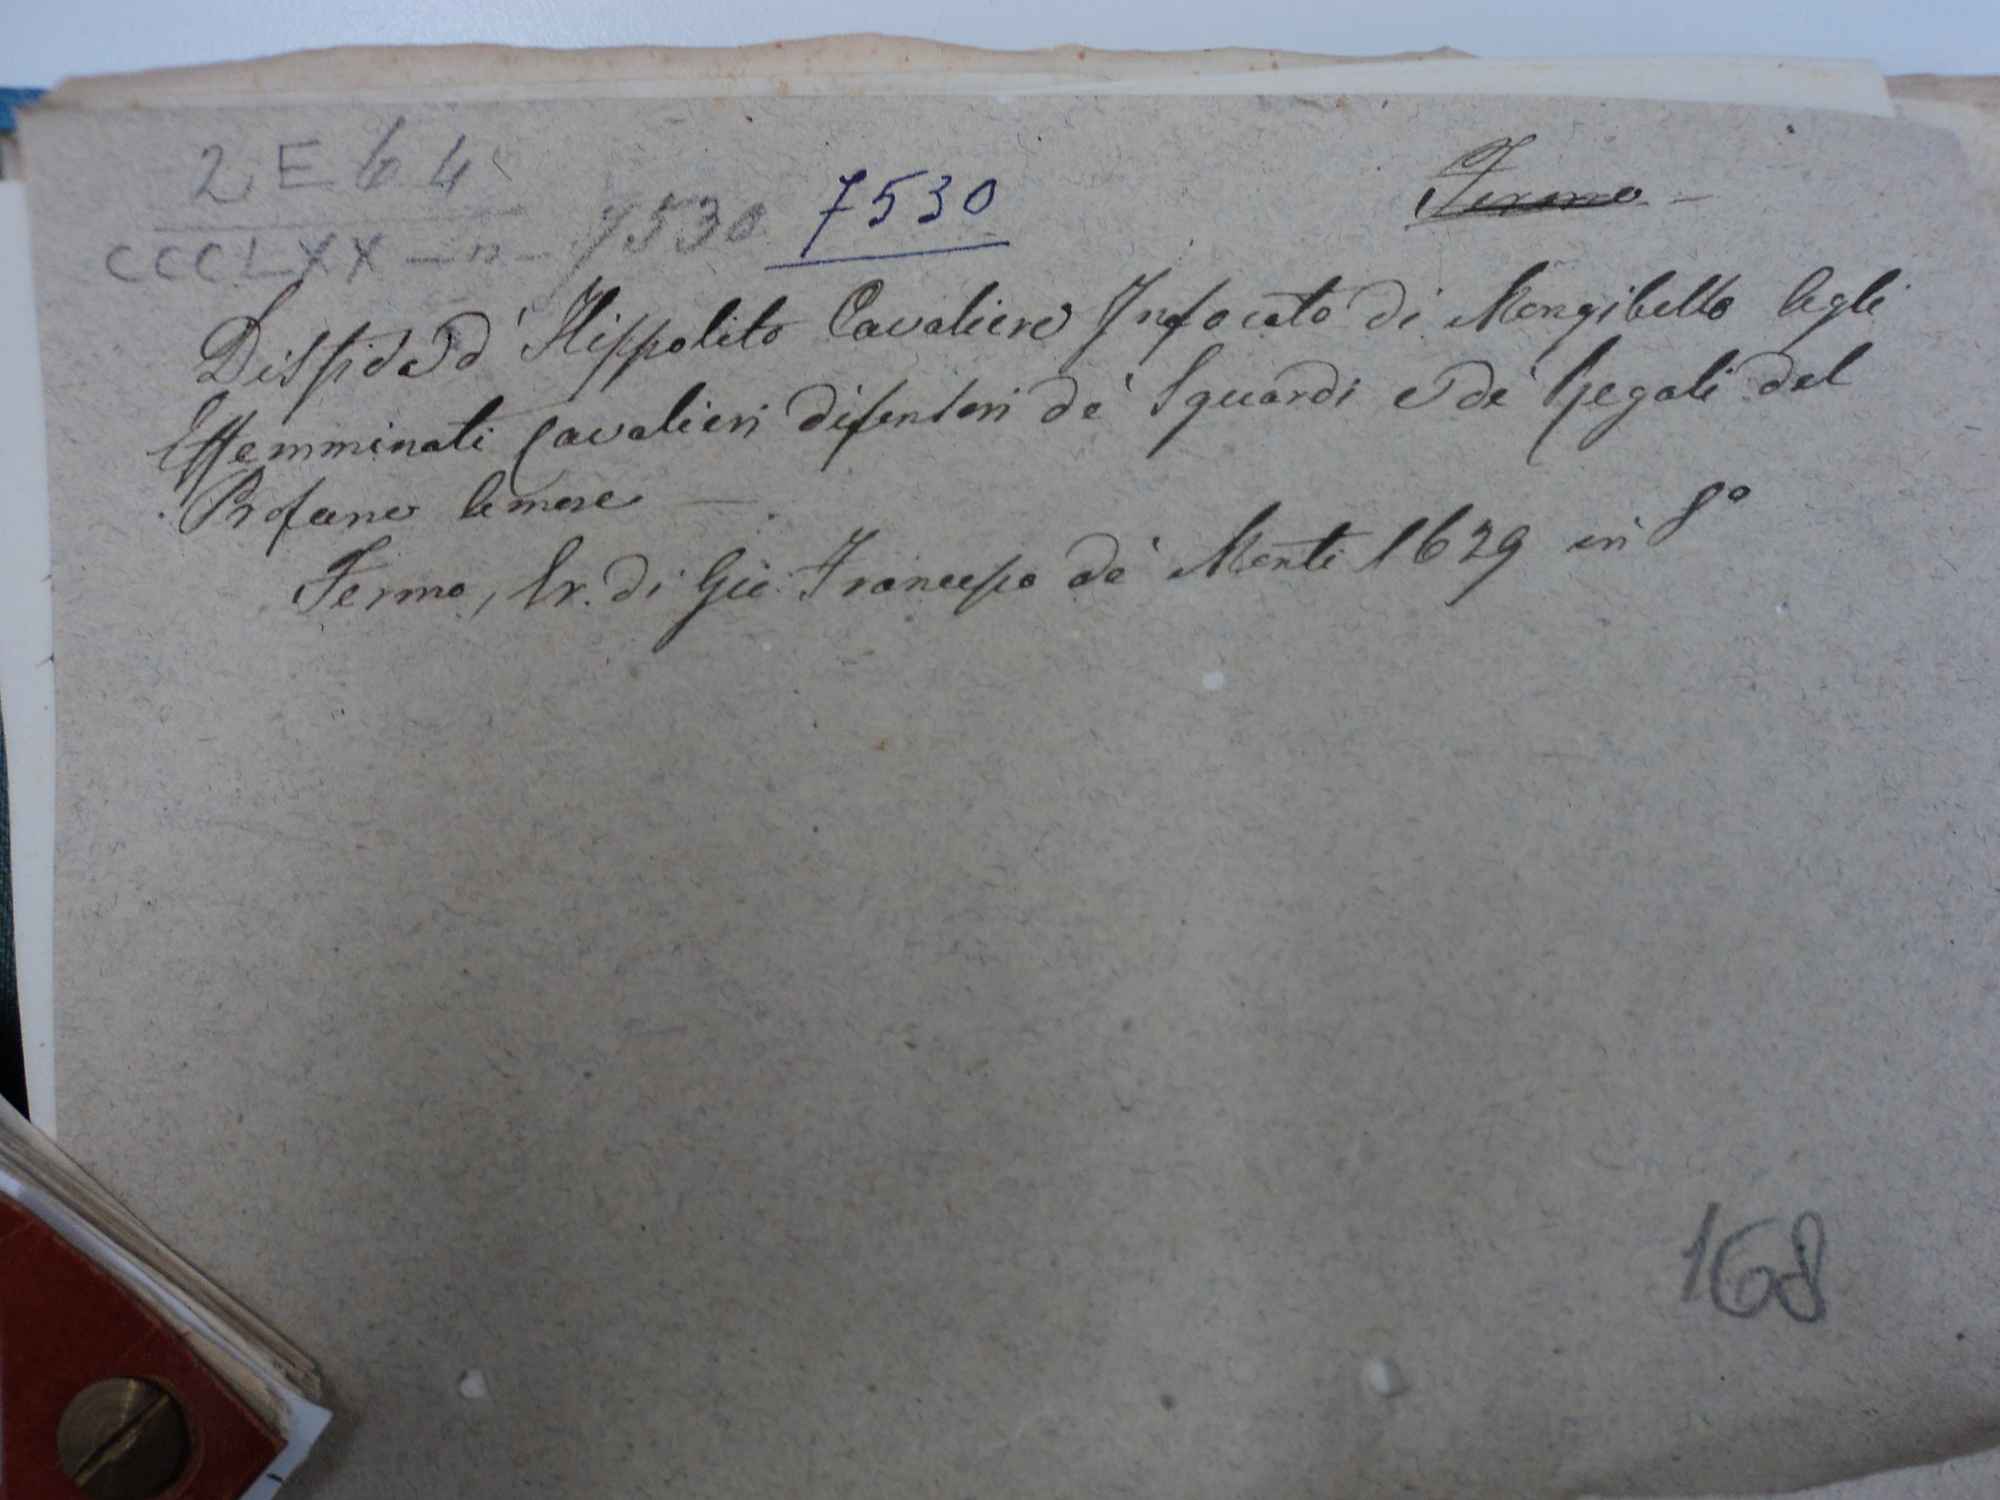 2 E b 4
CCCLXX - n - 7530 7530
Fermo -
Disfida d' Hippolito Cavaliere Infocato di Mongibello Agli
Effemminati Cavalieri difensori de' Sguardi e de' Regali del
Profano Amore -
Fermo, Er. di Gio: Francesco de' Monti 1629 in 8º
168